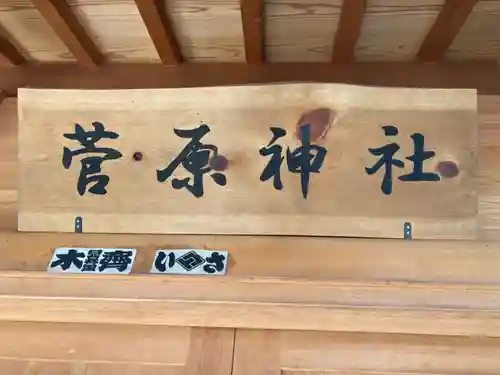 菅原神社
木齊
いさ